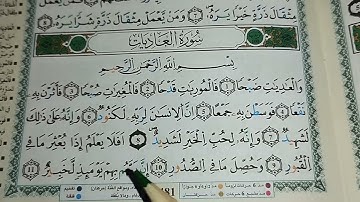 مِثْقَالَ ذَرَّةٍ خَيْرًا يَرَهُۥ ٧ وَمَن يَعْمَلْ مِثْقَالَ ذَرَّةٍ شَرًّا يَرَهُۥ ٨
سُورَةُ الْعَادِيَاتِ
بِسْمِ اللَّهِ الرَّحْمَٰنِ الرَّحِيمِ
وَالْعَٰدِيَٰتِ ضَبْحًا ١ فَالْمُورِيَٰتِ قَدْحًا ٢ فَالْمُغِيرَٰتِ صُبْحًا ٣ فَأَثَرْنَ بِهِۦ
نَقْعًا ٤ فَوَسَطْنَ بِهِۦ جَمْعًا ٥ إِنَّ الْإِنسَٰنَ لِرَبِّهِۦ لَكَنُودٌ ٦ وَإِنَّهُۥ عَلَىٰ ذَٰلِكَ
لَشَهِيدٌ ٧ وَإِنَّهُۥ لِحُبِّ الْخَيْرِ لَشَدِيدٌ ٨ أَفَلَا يَعْلَمُ إِذَا بُعْثِرَ مَا فِي
الْقُبُورِ ٩ وَحُصِّلَ مَا فِي الصُّدُورِ ١٠ إِنَّ رَبَّهُم بِهِمْ يَوْمَئِذٍ لَّخَبِيرٌ ١١